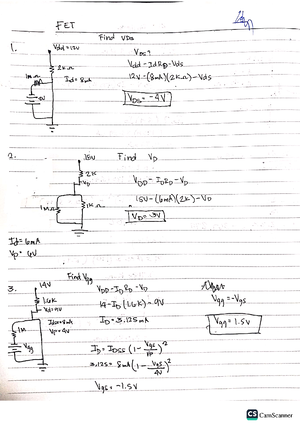 FET
Find VDS
1.
Vdd = 12V
2kΩ
1MΩ
Id = 8mA
VDS?
Vdd - IdRD - Vds
12V - (8mA)(2kΩ) - Vds
VDS = -4V
2.
15V
Find VD
2K
VD
1MΩ
1KΩ
VDD - IDRD - VD
15V - (6mA)(2K) - VD
VD = 3V
Id = 6mA
VP = 6V
3.
14V
Find Vgg
1.6K
Vd = 9V
Idss = 8mA
VP = 4V
1M
Vgg
VDD - ID RD - VD
14 - ID (1.6K) - 9V
ID = 3.125mA
ID = IDSS (1 - Vgs/VP)²
3.125 = 8mA (1 - Vgs/4V)²
Vgs = -1.5V
Vgg = -Vgs
Vgg = 1.5V
CS CamScanner